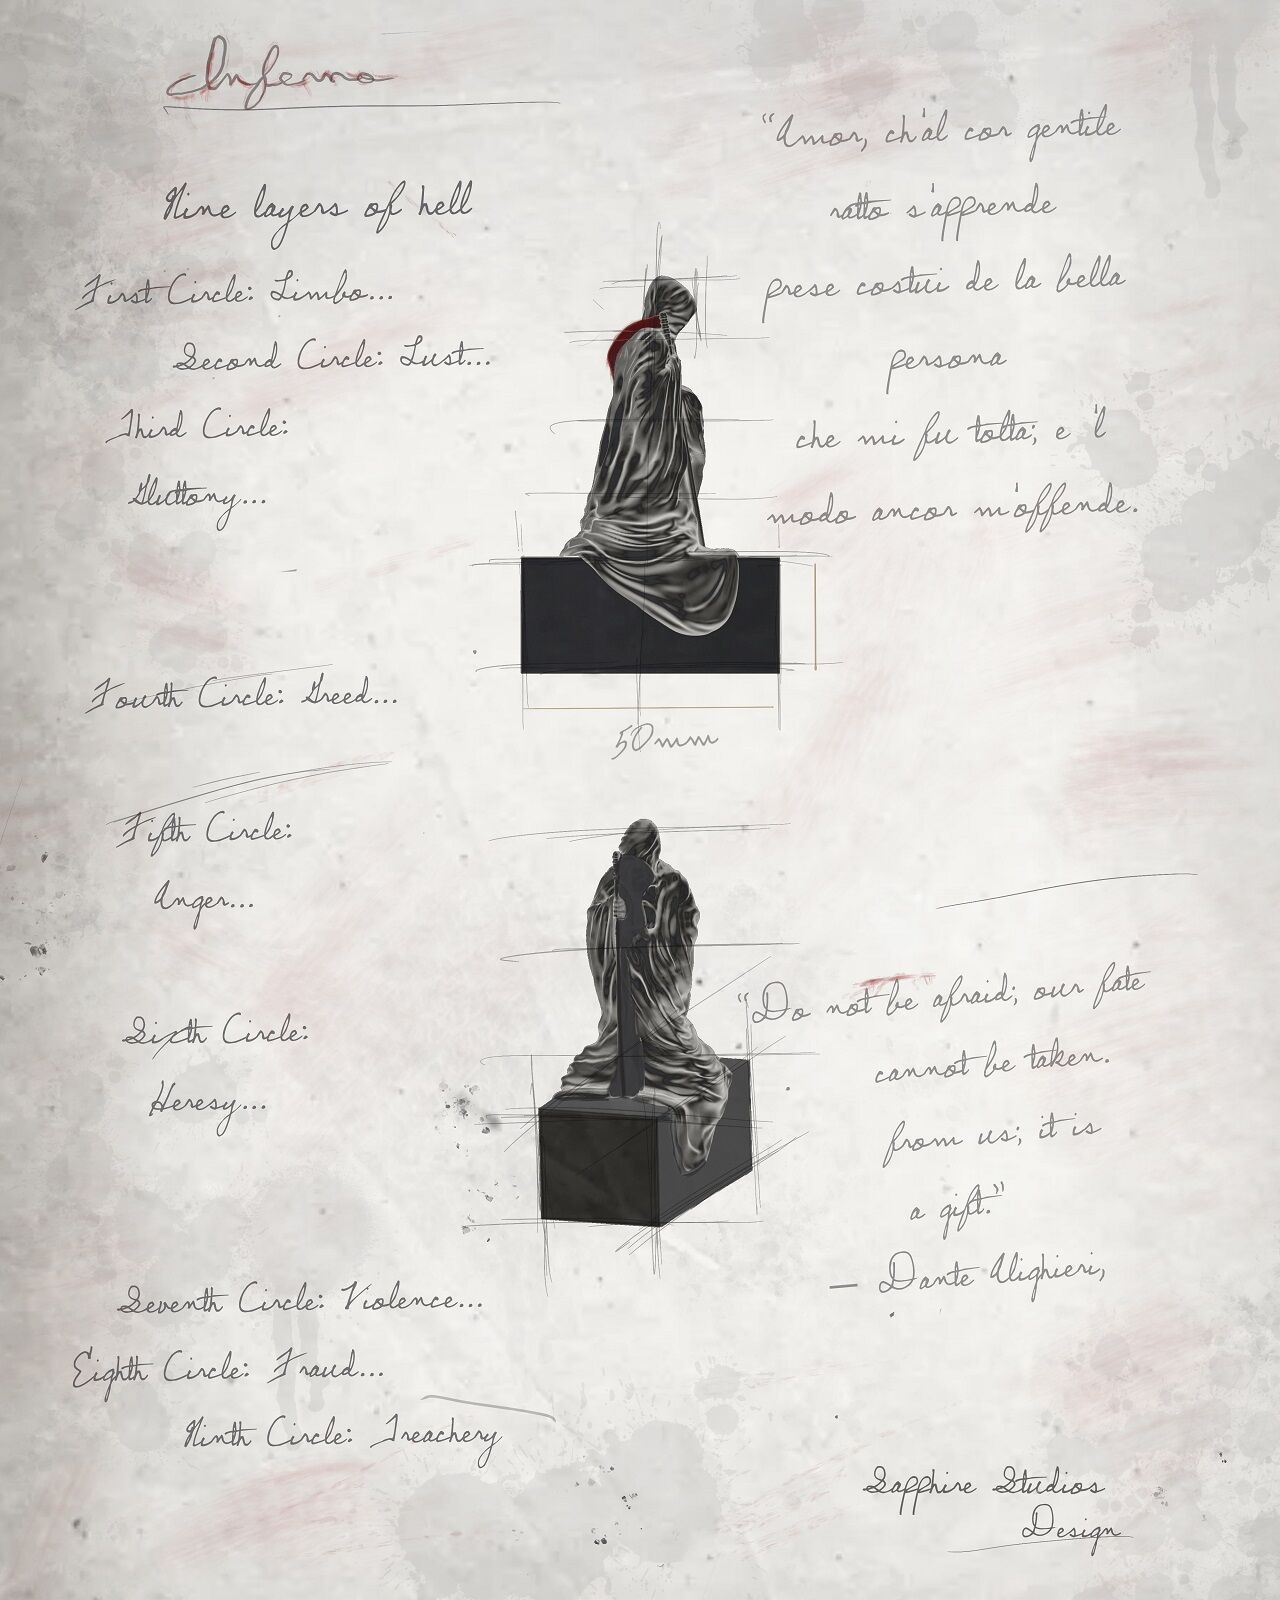 Inferno
Nine layers of hell
First Circle: Limbo...
Second Circle: Lust...
Third Circle:
Gluttony...
Fourth Circle: Greed...
Fifth Circle:
Anger...
Sixth Circle:
Heresy...
Seventh Circle: Violence...
Eighth Circle: Fraud...
Ninth Circle: Treachery
50mm
"Amor, ch'al cor gentile
ratto s'apprende
prese costui de la bella
persona
che mi fu tolta; e 'l
modo ancor m'offende.
"Do not be afraid; our fate
cannot be taken.
from us; it is
a gift."
— Dante Alighieri,
Sapphire Studios
Design